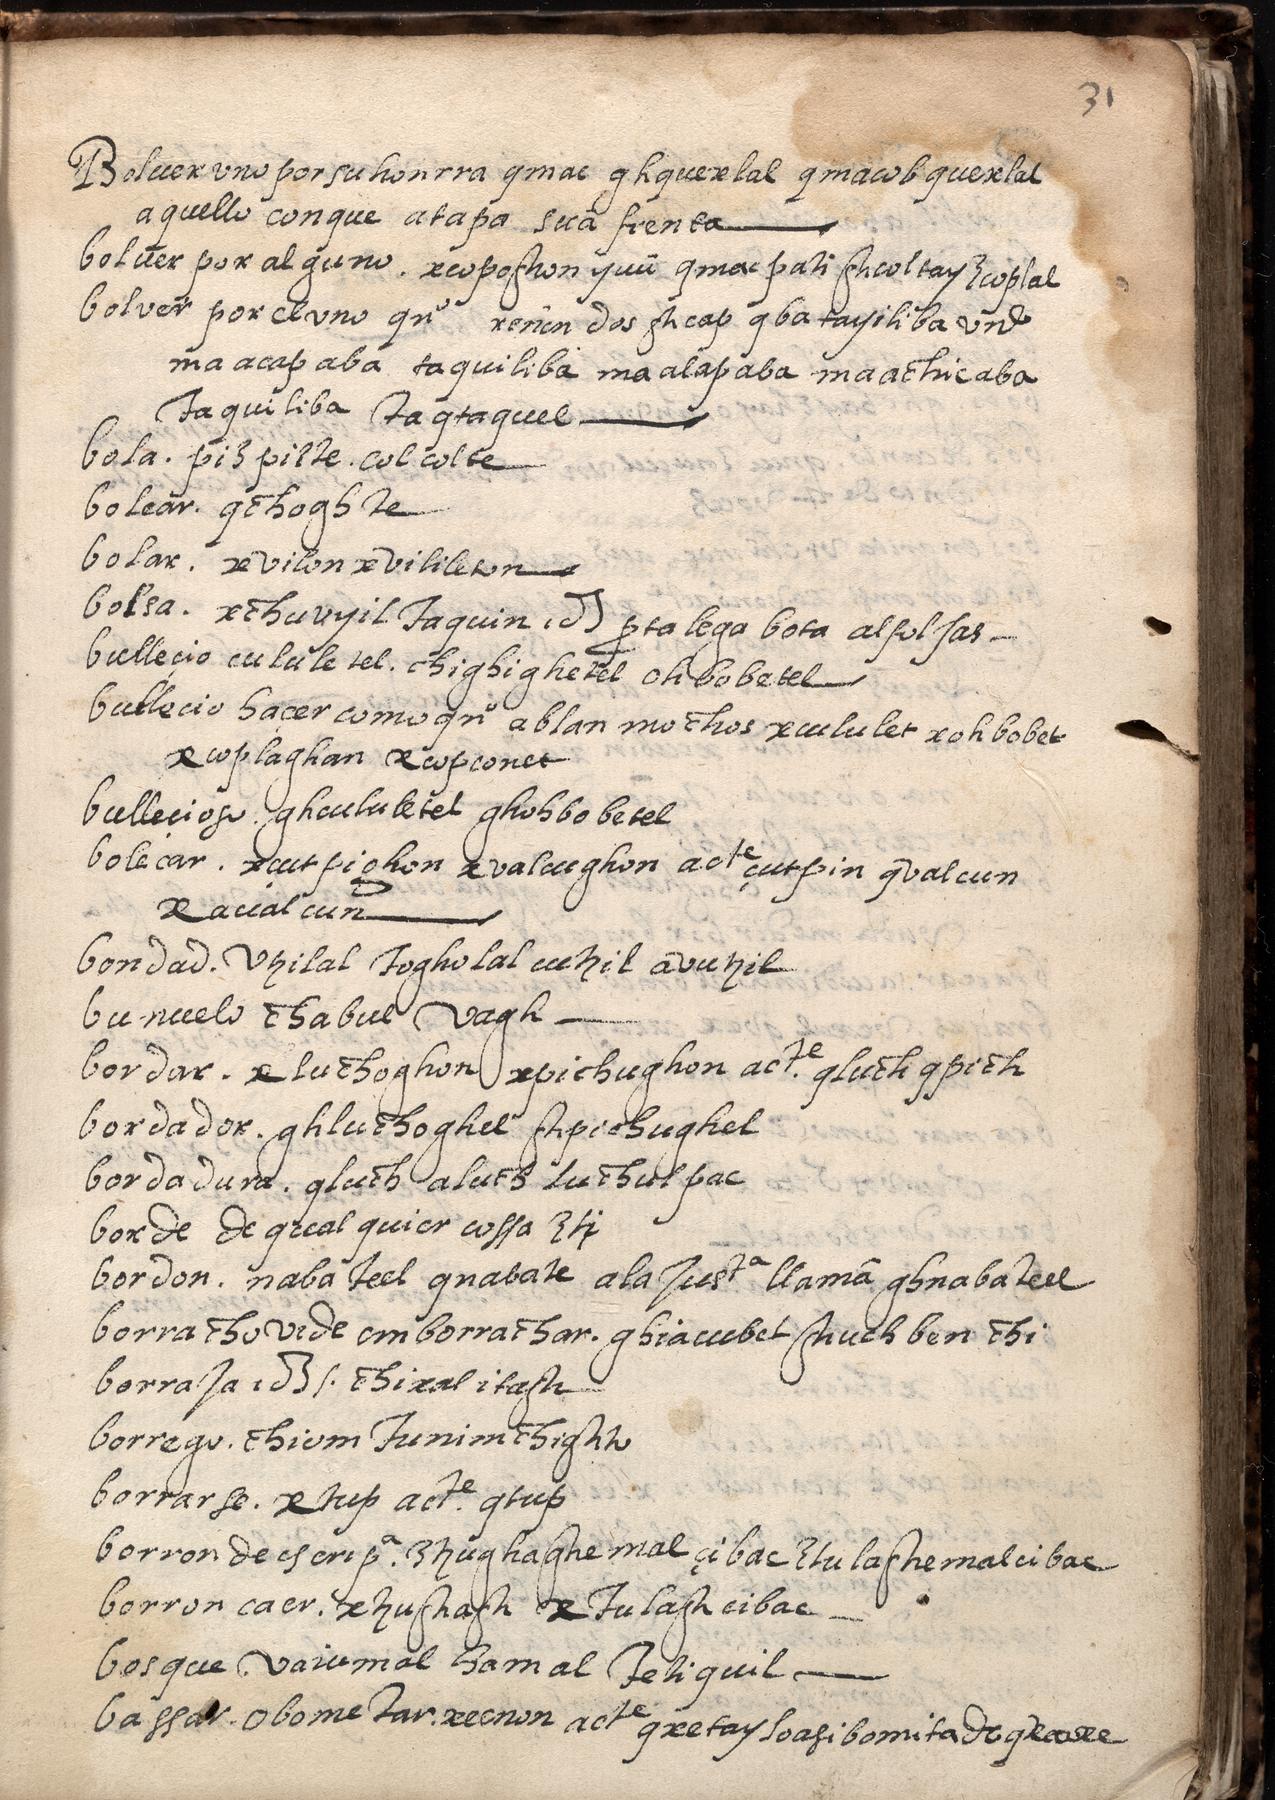 31
Boluer vno por su honrra qmac ghquexlal qmacob quexlal
aquello conque atapa suā frenta
boluer por alguno. xcoposhon yuū qmac pati shcoltay Ꜣcoplal
bolver por el vno qnº xenēn dos shcap qba tayiliba vno
ma acap aba taquiliba ma alapaba ma achic aba
taquiliba taqtaquel
bola. piꜢ pilte. col colte
bolear. qchoghte
bolar. xvilon xvilileton
bolsa. xchuvyil taquin talega bota alfolsas
bullecio cululetel. chighighetel ohbobetel
bullecio haçer como qnº ablan mochos xcululet xohbobet
xcoplaghan xcopconet
bullecioso. ghcululetel ghohbobetel
boleçar. xçutpighon xvalcughon acte çutpin qvalcun
xaualcun
bondad. vtzilal togholal utzil āvutzil
bunuelo chabul vagh
bordar. xluchoghon xpichughon acte. qluch qpich
bordador. ghluchoghel shpichughel
bordadura. qluch aluch luchul pac
borde de qualquier cossa Ꜣti
bordon. nabateel qnabate ala justa llamā ghnabateel
borracho vide emborrachar. ghiacubel shuch ben chi
borraja chixal itash
borrego. chiom tunimchighto
borrarse. xtup acte. qtup
borron de escripa. Ꜣtzughaghemal çibac Ꜣtulashemal cibac
borron caer. xtzushash xtulash cibac
bosque vaiumal hamal tetiquil
bassar. o bometar. xecnon acte qxetay loasi bomitado qxaxee